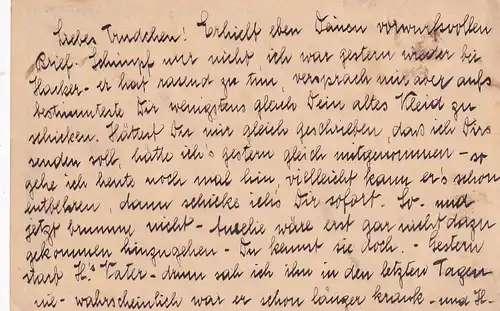 Liebes Trudchen! Erhielt eben Deinen vorwurfsvollen
Brief. Schimpf mir nicht, ich war gestern wieder bei
Hacker - er hat rasend zu tun, versprach mir aber aufs
bestimmteste Dir wenigstens gleich Dein altes Kleid zu
schicken. Hättest Du mir gleich geschrieben, dass ich Dirs
senden soll, hätte ich's gestern gleich mitgenommen - so
gehe ich heute noch mal hin, vielleicht kann er's schon
entbehren, dann schicke ich's Dir sofort. So - und
jetzt brumme nicht - Amelie wäre erst gar nicht dazu
gekommen hinzugehen - Du kennst sie doch. - Gestern
starb H.'s Vater - drum sah ich ihn in den letzten Tagen
nie - wahrscheinlich war er schon länger krank - und H.